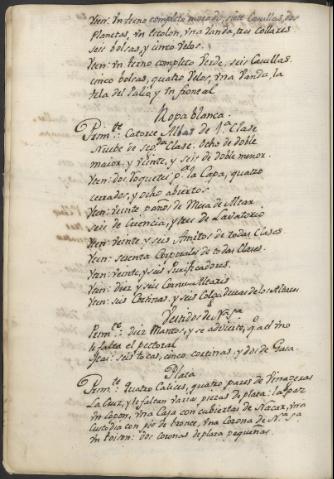 Yten: Un terno completo morado, siete Casullas, dos
Planetas, Un estolon, una Vanda, tres Collares
seis bolsas, y cinco Velos.
Yten: un terno completo Verde, seis Casullas.
cinco bolsas, quatro Velos, Una Vanda, la
tela del Palio, y Un frontal
Ropa blanca.
Primte. Catorce Albas de 1ª Clase
Nuebe de segda. Clase. Ocho de doble
maior, y veinte, y seis de doble menor.
Yten: dos Roquetes pª. la Capa, quatro
cerrados, y ocho abiertos
Yten: veinte paños de Mesa de Altar
seis de Credencia, y tres de Lavatorio
Yten: veinte y seis Amitos de todas Clases
Yten: sesenta Corporales de todas Clases.
Yten: veinte, y seis Purificadores.
Yten: Diez y seis Cornu Altaris
Yten: seis Cortinas, y seis Colgaduras de los Altares
Vestidos de Nª. Sª.
Primte.: diez Mantos, y se advierte, q. a el uno
le falta el pectoral
Yten: seis tocas, cinco cortinas, y dos de Gasa.
Plata
Primte. Quatro Calices, quatro pares de Vinageras
La Cruz, y le faltan varias piezas de plata: la paz
Un Copon, una Caja con cubiertas de Nacar, una
Custodia con pie de bronce, una Corona de Nª. Sª.
Un toison: dos coronas de plata pequeñas.